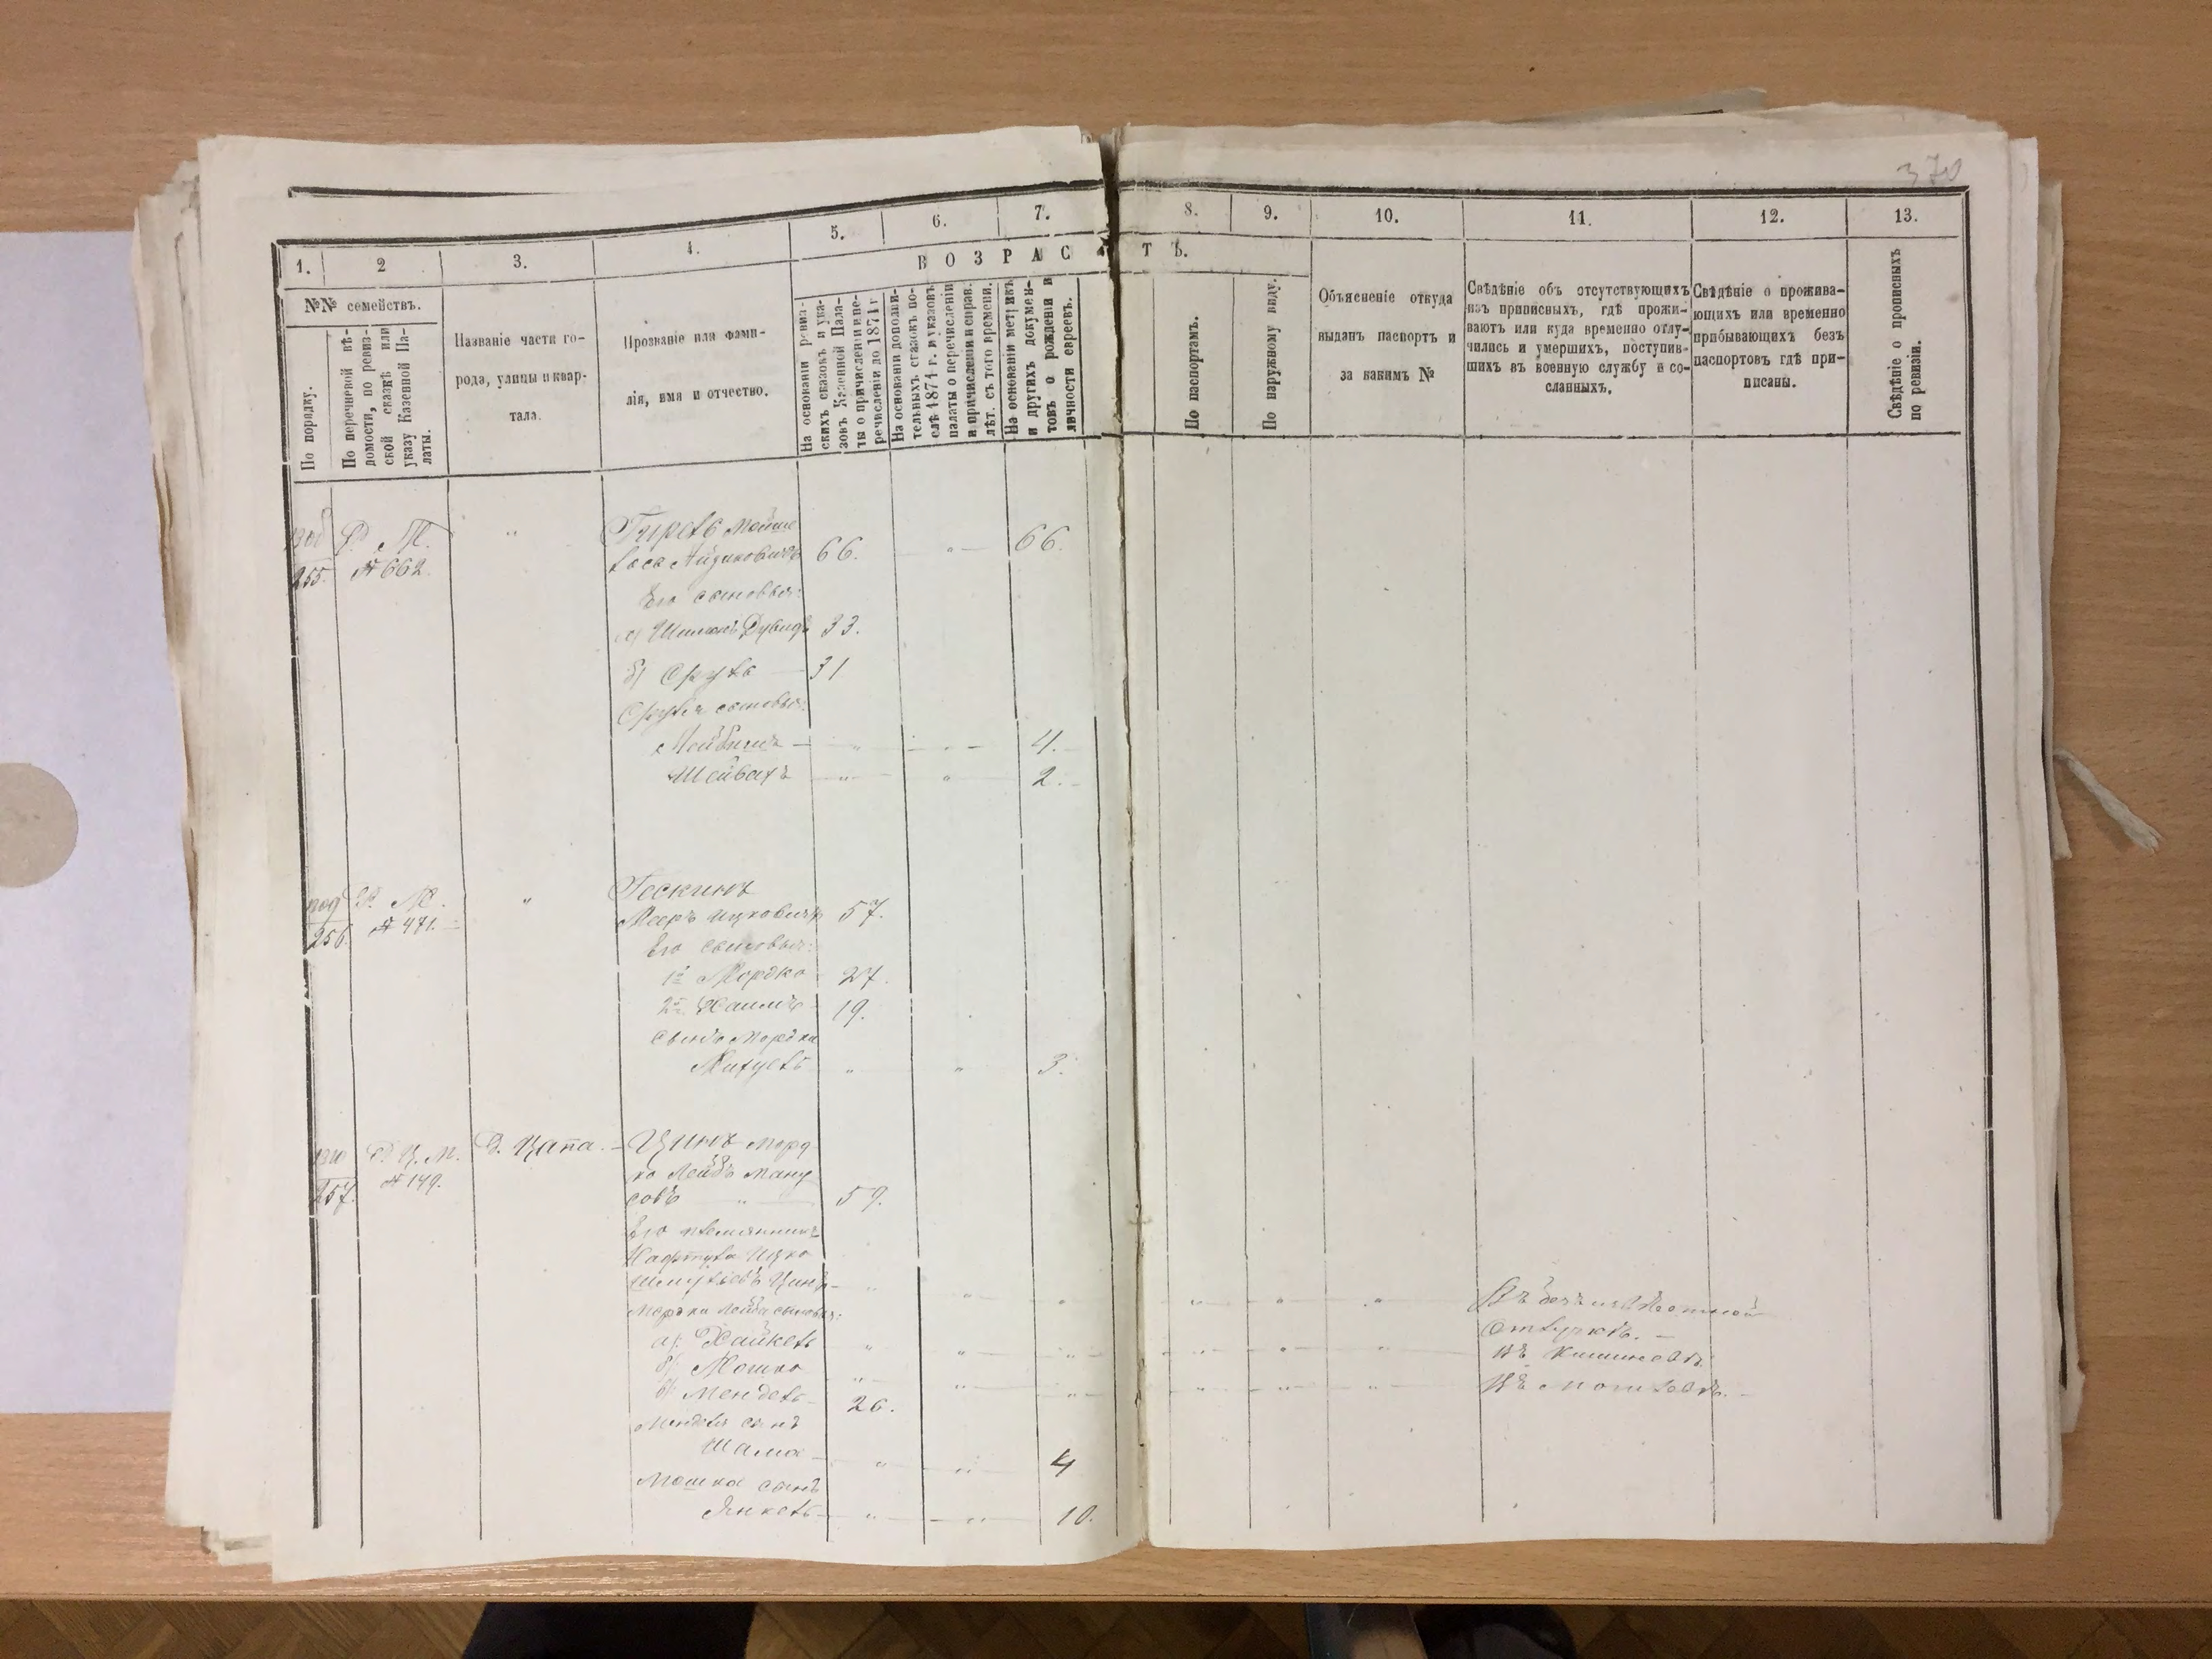 370
1.
2
3.
4.
5.
6.
7.
8.
9.
10.
11.
12.
13.
ВОЗРАСТЪ.
№№ семействъ.
По порядку.
По перечневой вѣ-
домости, по ревиз-
ской сказкѣ или
указу Казенной Па-
латы.
Названіе части го-
рода, улицы и квар-
тала.
Прозваніе или фами-
лія, имя и отчество.
На основаніи ревиз-
скихъ сказокъ и ука-
зовъ Казенной Пала-
ты о причисленіи и пе-
речисленіи до 1874 г
На основаніи дополни-
тельныхъ сказокъ по-
слѣ 1874 г. и указовъ
палаты о перечисленіи
и причисленіи и справ.
лѣт. съ того времени.
На основаніи метрикъ
и другихъ докумен-
товъ о рожденіи и
личности евреевъ.
По паспортамъ.
По наружному виду.
Объясненіе откуда
выданъ паспортъ и
за какимъ №
Свѣдѣніе объ отсутствующихъ
изъ приписныхъ, гдѣ прожи-
ваютъ или куда временно отлу-
чились и умершихъ, поступив-
шихъ въ военную службу и со-
сланныхъ.
Свѣдѣніе о прожива-
ющихъ или временно
прибывающихъ безъ
паспортовъ гдѣ при-
писаны.
Свѣдѣніе о прописныхъ
по ревизіи.
255. № 662. Мойше
66. " 66.
Его сыновья:
а) Дувидъ 33.
б) Сруль 31
Сруля сыновья:
Лейбишъ " " 4.
Шейвахъ " " 2.
256. № 471. " Гескинъ
Мееръ Ицковичъ 57.
Его сыновья:
1й Мордко 27.
2й Хаимъ 19.
Сынъ Мордки
" " 3.
257. № 149. Цинъ Морд-
ко ЛейбъМану
совъ " 59.
Его племянникъ
Нафтула Ицко
Шмулевъ Цинъ " " " " " " Въ безъизвѣстной
отлучкѣ.
Мордки Лейба сыновья:
а) Хайкель " " " " " " Въ Кишиневѣ
б) Мошко " " " " " " Въ Могилевѣ.
в) Мендель 26.
Менделя сынъ
Шама " " 4
Мошка сынъ
Янкель " " 10.